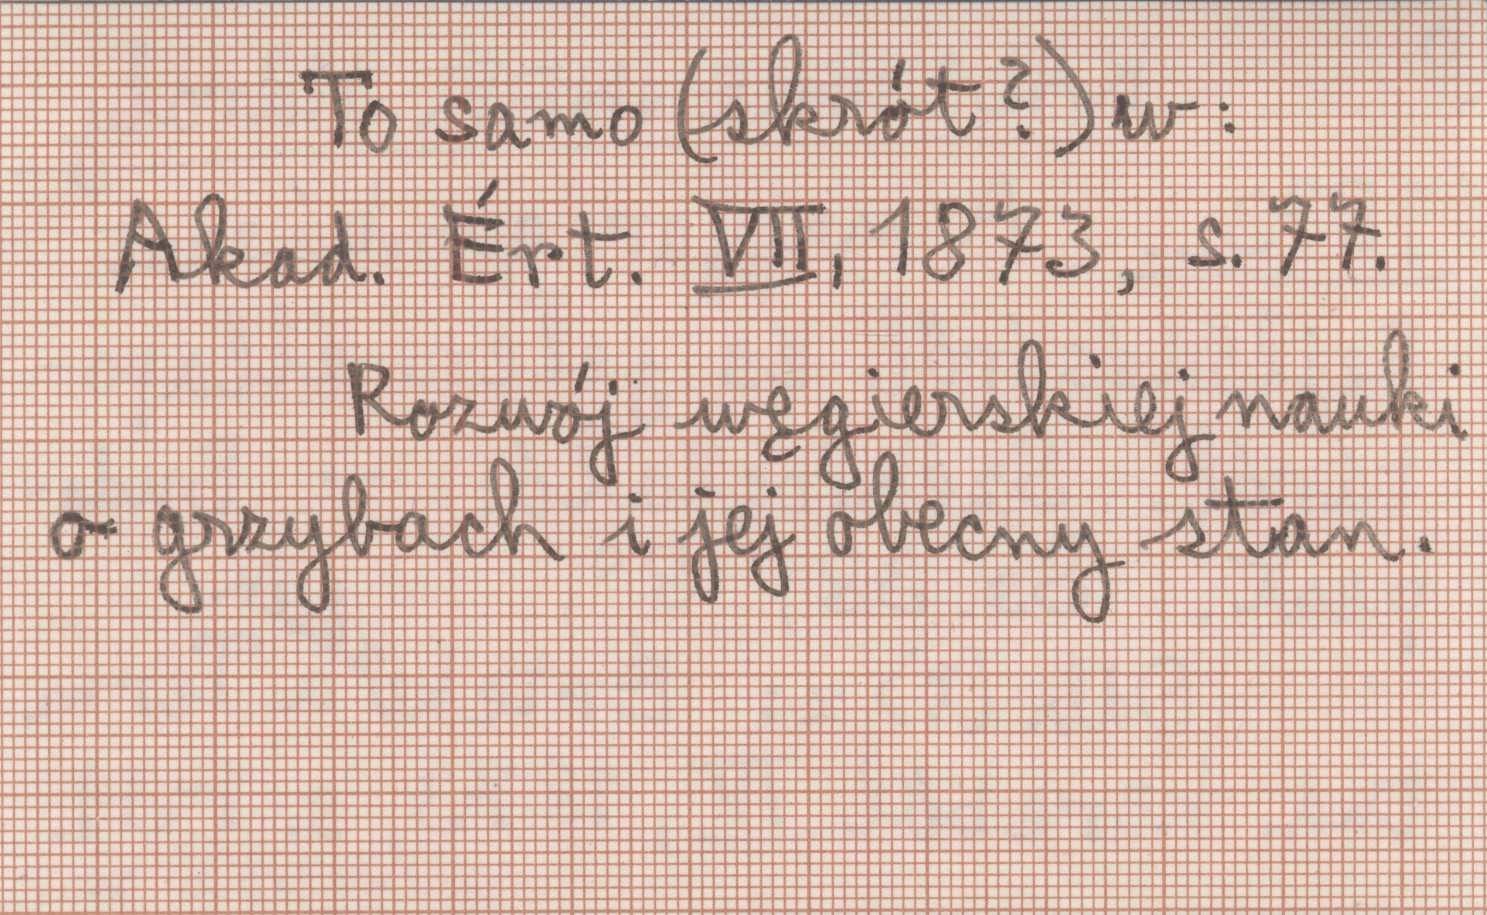 To samo (skrót?) w:
Akad. Ért. VII, 1873, s. 77.
Rozwój węgierskiej nauki
o grzybach i jej obecny stan.